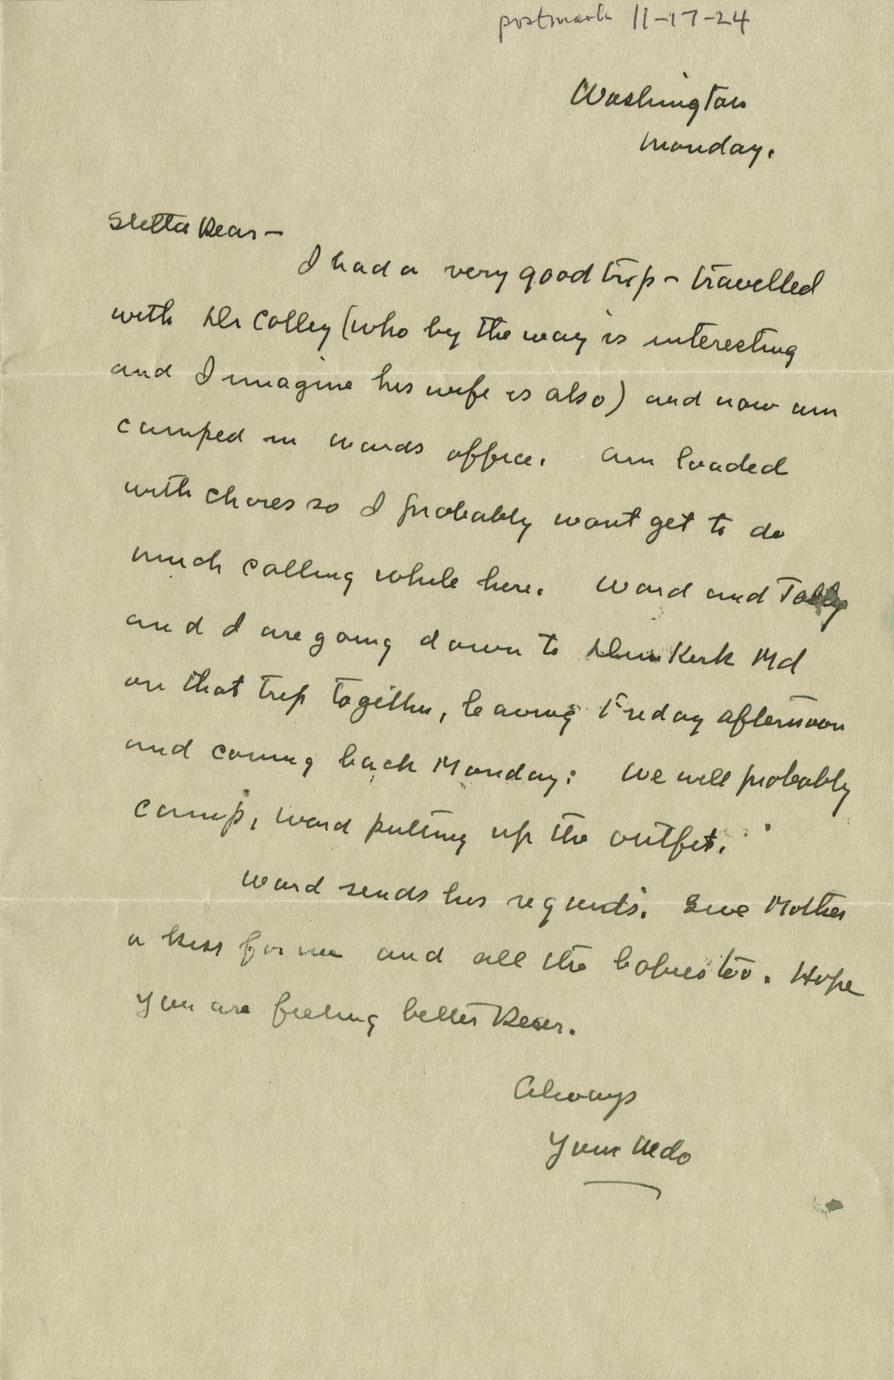 postmark 11-17-24
Washington
Monday.
Stella Dear —
I had a very good trip — travelled
with Dr Colley (who by the way is interesting
and I imagine his wife is also) and now am
camped in Wards office. Am loaded
with chores so I probably wont get to do
much calling while here. Ward and
and I are going down to DunKerk Md
on that trip together, leaving Friday afternoon
and coming back Monday: We will probably
camp, Ward putting up the outfit.
Ward sends his regards. Give Mother
a kiss for me and all the babies too. Hope
you are feeling better Dear.
Always
Your Aldo